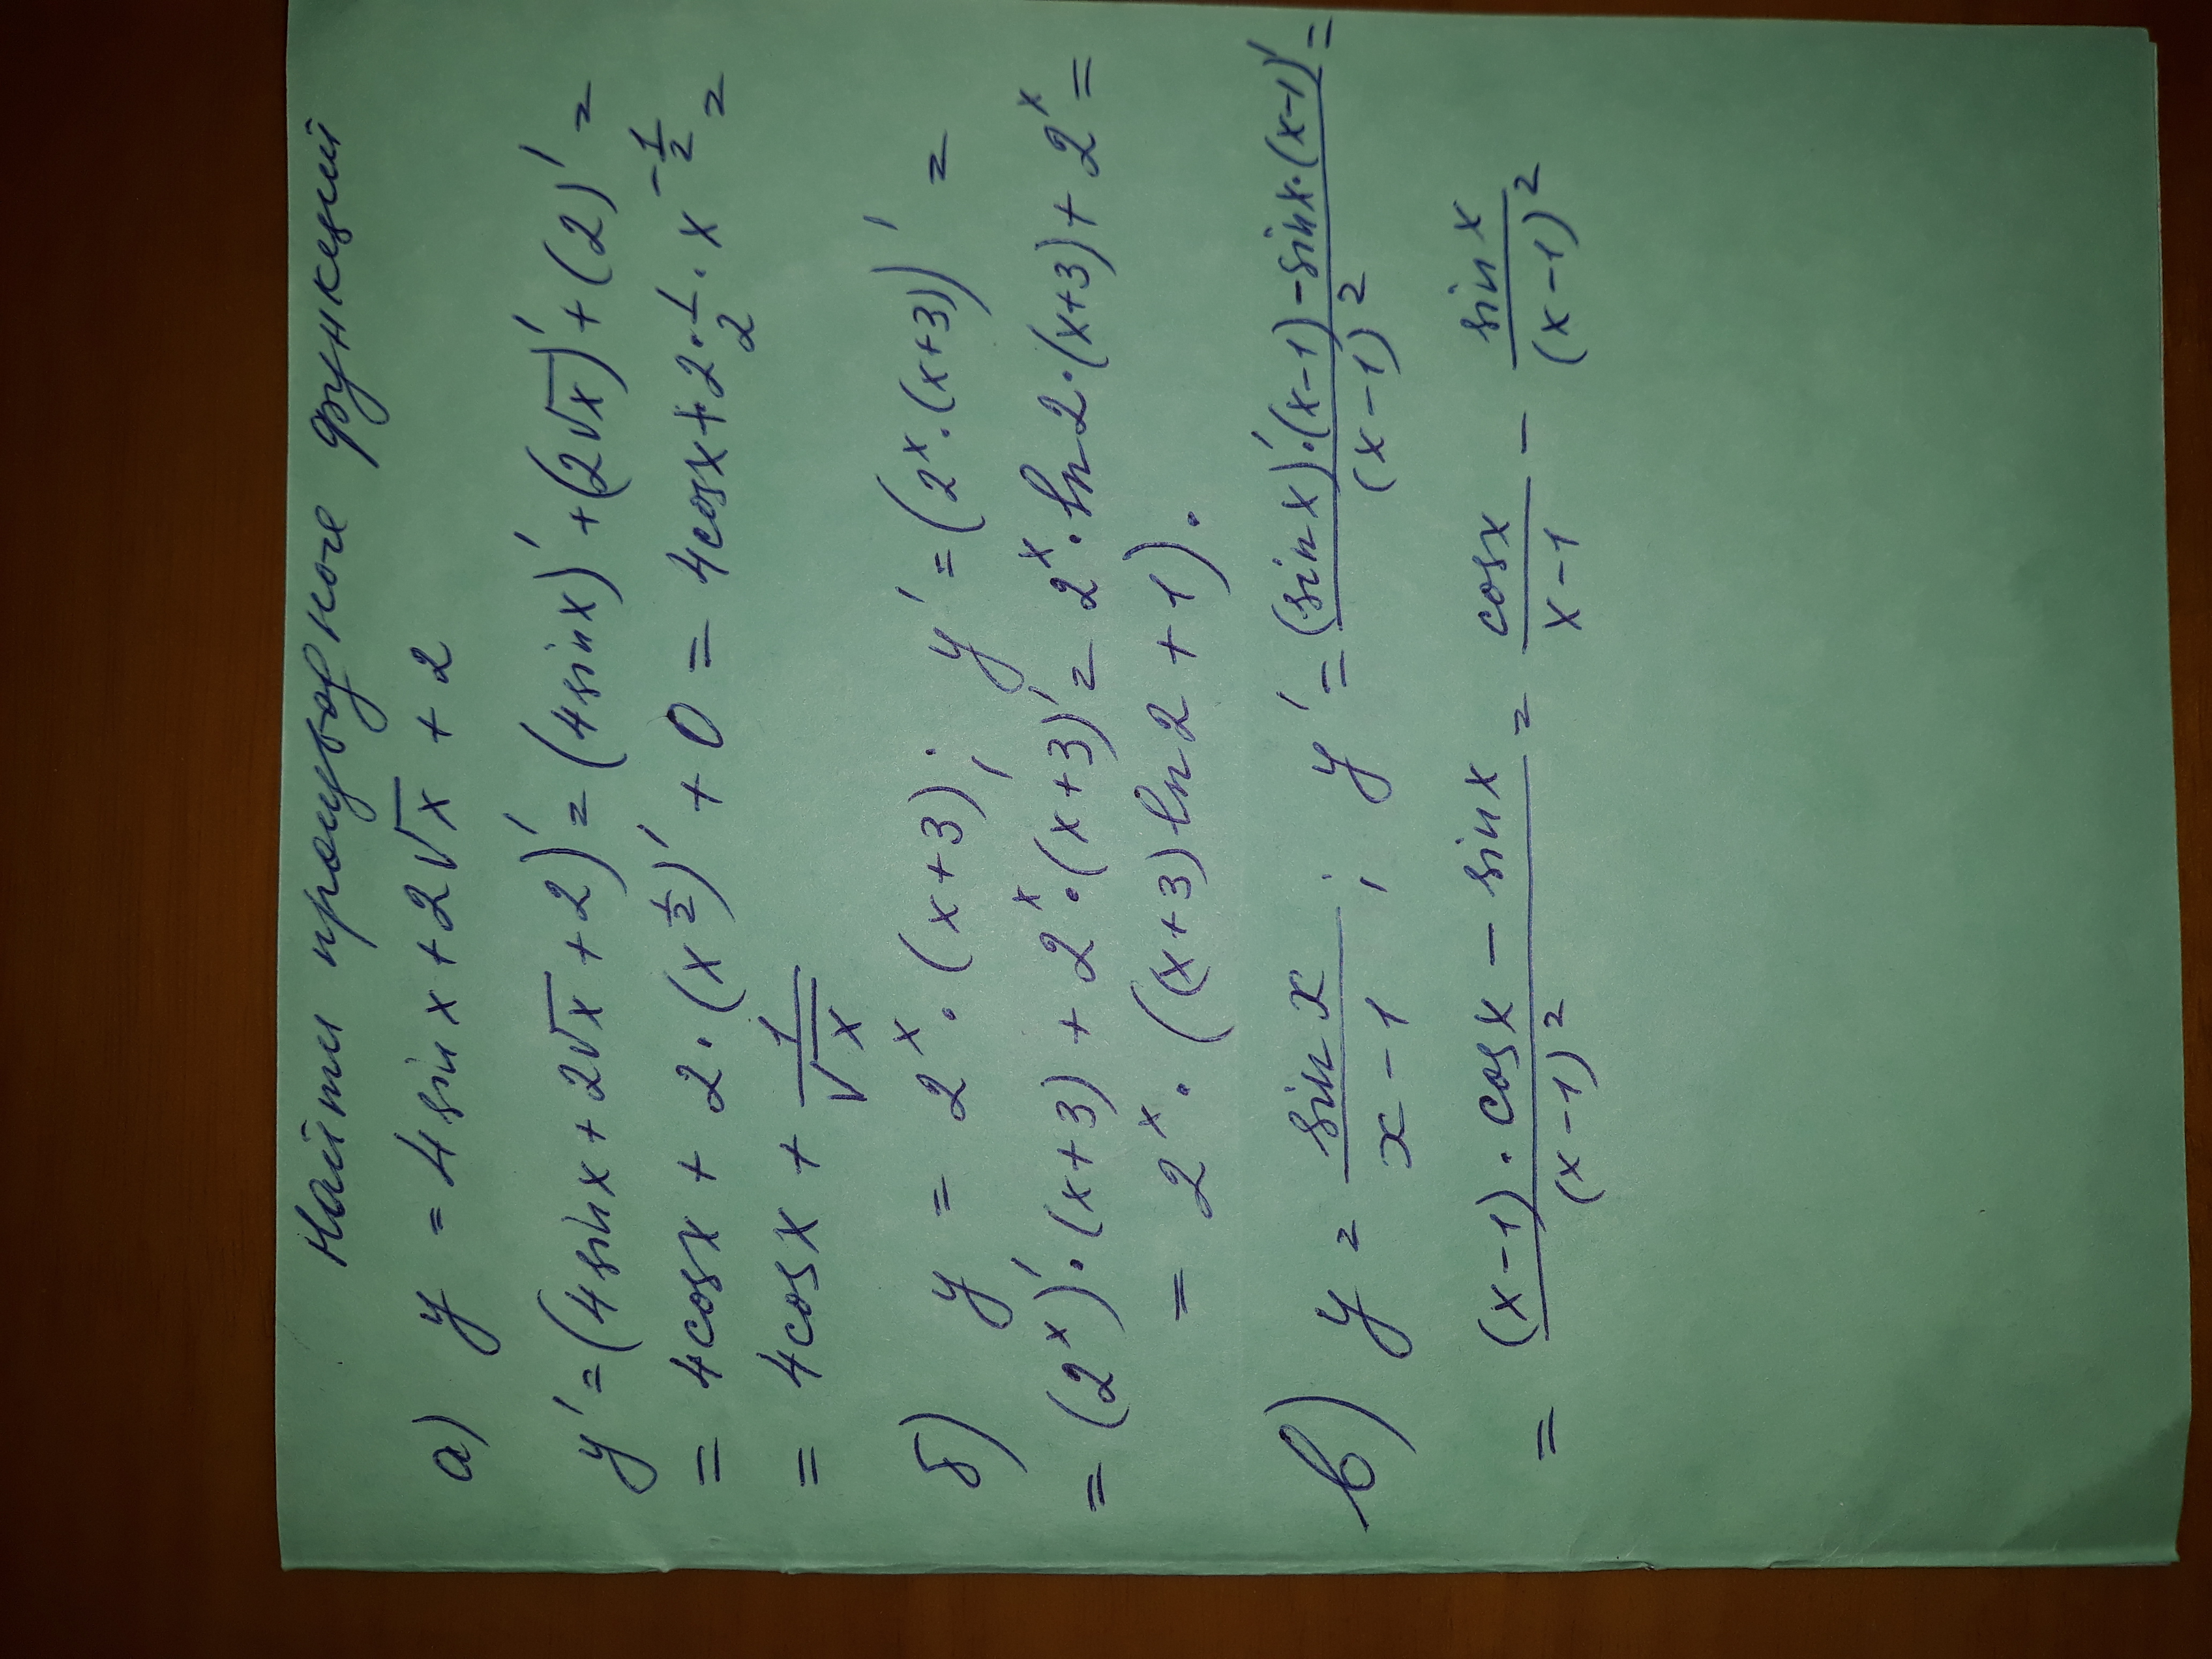 Найти производные функций
а) y = 4 sin x + 2√x + 2
y' = (4 sin x + 2√x + 2)' = (4 sin x)' + (2√x)' + (2)' =
= 4 cos x + 2 · (x^(1/2))' + 0 = 4 cos x + 2 · 1/2 · x^(-1/2) =
= 4 cos x + 1/√x
б) y = 2^x · (x+3); y' = (2^x · (x+3))' =
= (2^x)' · (x+3) + 2^x · (x+3)' = 2^x · ln 2 · (x+3) + 2^x =
= 2^x · ((x+3) ln 2 + 1).
в) y = sin x / (x-1); y' = ((sin x)' · (x-1) - sin x · (x-1)') / (x-1)^2 =
= ((x-1) · cos x - sin x) / (x-1)^2 = cos x / (x-1) - sin x / (x-1)^2